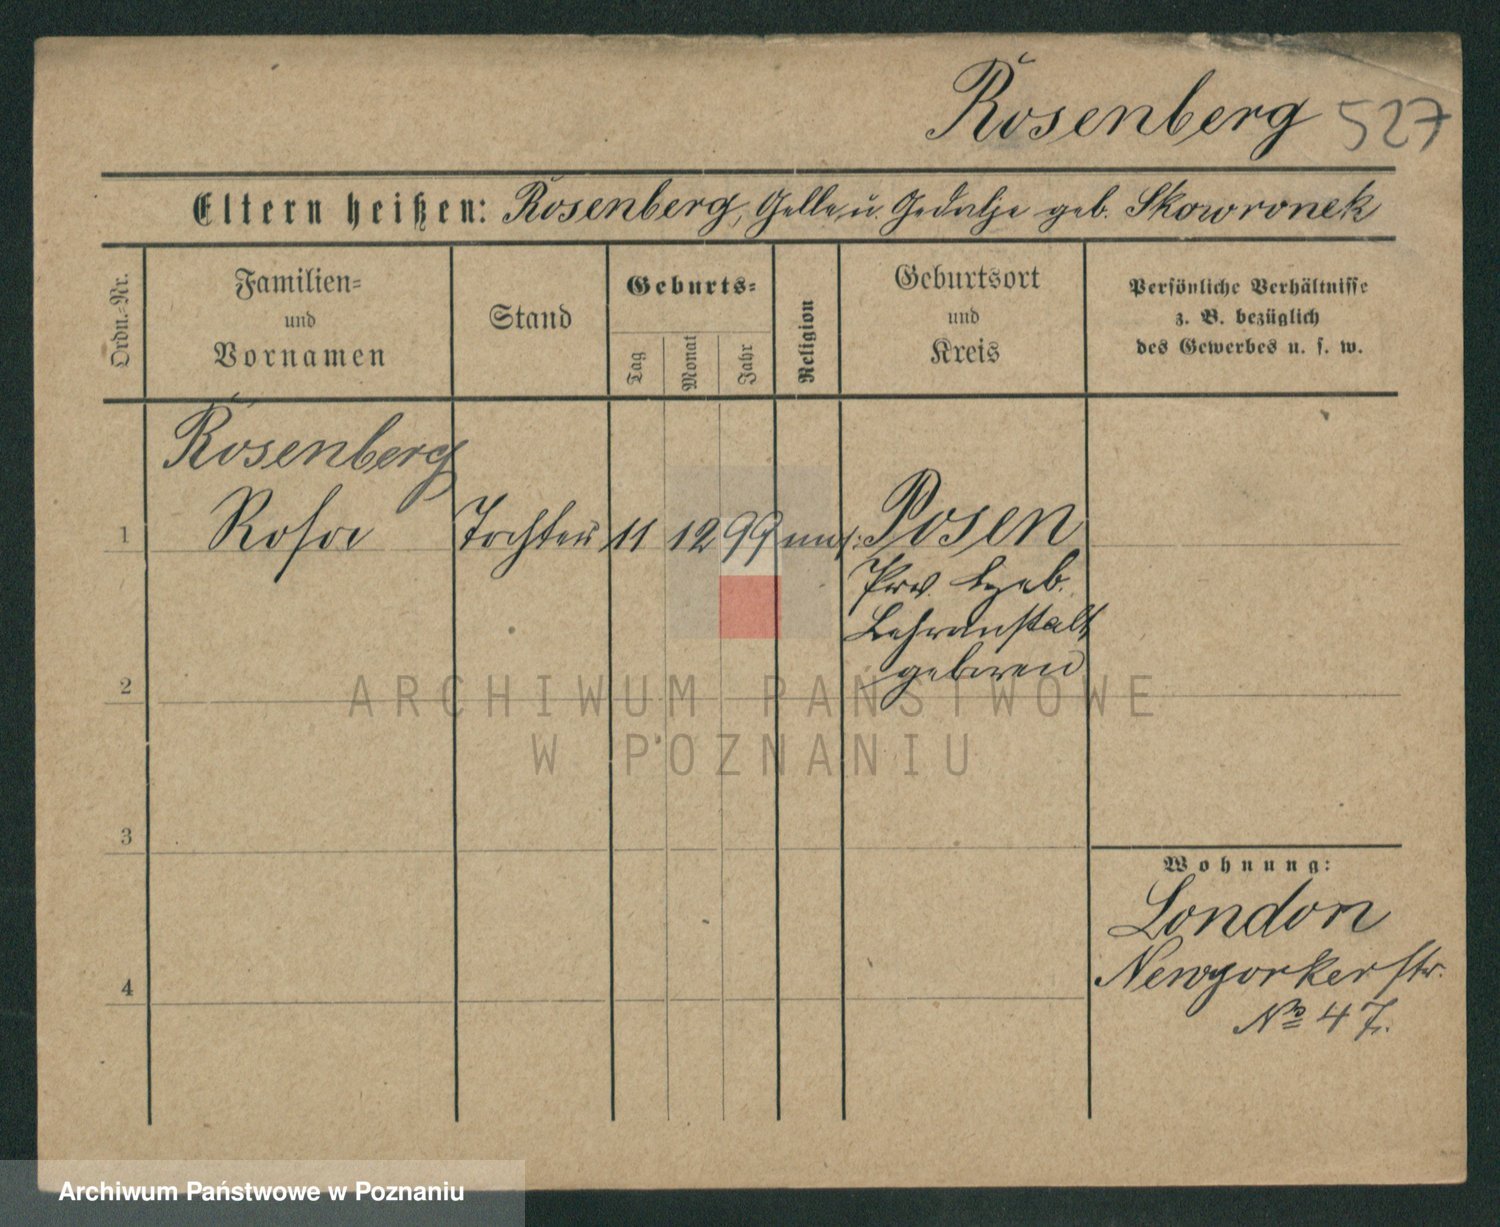 Rosenberg 527
Eltern heißen: Rosenberg, Gelle u. Gedalje geb. Skowronek
Ordn.-Nr.
Familien-
und
Vornamen
Stand
Geburts-
Tag
Monat
Jahr
Religion
Geburtsort
und
Kreis
Persönliche Verhältnisse
z. B. bezüglich
des Gewerbes u. s. w.
Rosenberg
1 Rosa Tochter 11 12 99 Posen
Prov.
Lehranstalt
geboren
2
ARCHIWUM PAŃSTWOWE
W POZNANIU
3
Wohnung:
London
Newyorker str.
4
No 47.
Archiwum Państwowe w Poznaniu